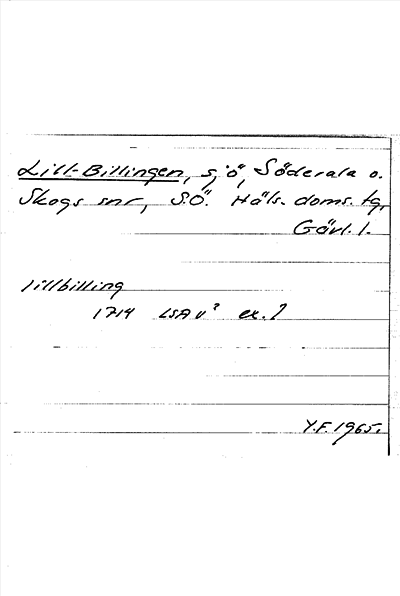 Lill-Billingen, sjö, Söderala o.
Skogs snr, S.Ö. Häls. doms. tg,
Gävl. l.
lillbilling
1714 LSA v² ex. 1
Y.F. 1965.